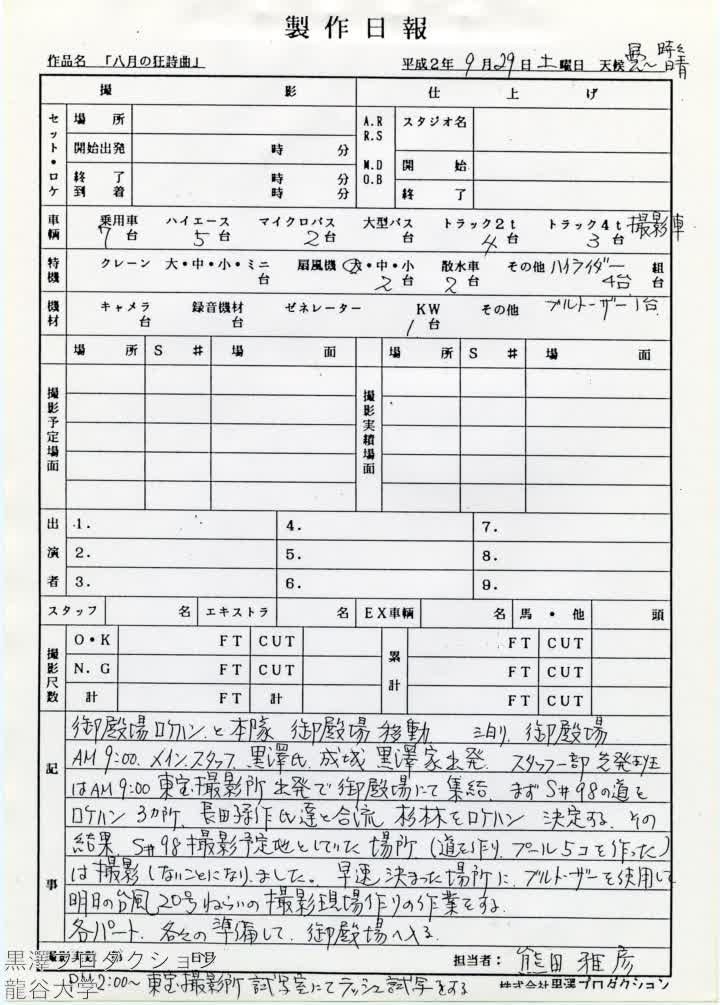 製作日報
作品名 「八月の狂詩曲」 平成2年 9月29日 土曜日 天候 曇〜時々晴
撮影 仕上げ
セット・ロケ 場所 A.R R.S スタジオ名
開始出発 時 分 M.D O.B 開始
終了到着 時 分 時 分 終了
車輌 乗用車 7台 ハイエース 5台 マイクロバス 2台 大型バス 台 トラック2t 4台 トラック4t 3台 撮影車
特機 クレーン 大・中・小・ミニ 台 扇風機 大・中・小 2台 散水車 2台 その他 ハイライダー 4台 組 台
機材 キャメラ 台 録音機材 台 ゼネレーター KW 1台 その他 ブルトーザー 1台
場所 S# 場面 場所 S# 場面
撮影予定場面 撮影実績場面
出演者 1. 4. 7.
2. 5. 8.
3. 6. 9.
スタッフ 名 エキストラ 名 EX車輌 名 馬・他 頭
撮影尺数 O・K FT CUT 累計 FT CUT
N.G FT CUT FT CUT
計 FT 計 FT CUT
記事
御殿場ロケハンと本隊 御殿場移動 泊り、御殿場
AM 9:00. メインスタッフ、黒澤氏、成城 黒澤家出発. スタッフ一部先発班
はAM9:00 東宝撮影所出発で御殿場にて集結. まずS#98の道を
ロケハン 3カ所、長田孫作氏達と合流 杉林をロケハン 決定する、その
結果、S#98撮影予定地としていた場所、(道を作り、プール5コを作った)
は撮影しないことになりました。早速決まった場所に、ブルトーザーを使用して
明日の台風20号ねらいの撮影現場作りの作業をする.
各パート、各々の準備して、御殿場へ入る.
担当者: 熊田雅彦
PM2:00〜東宝撮影所 試写室にてラッシュ試写をする
株式会社黒澤プロダクション
黒澤プロダクション
龍谷大学